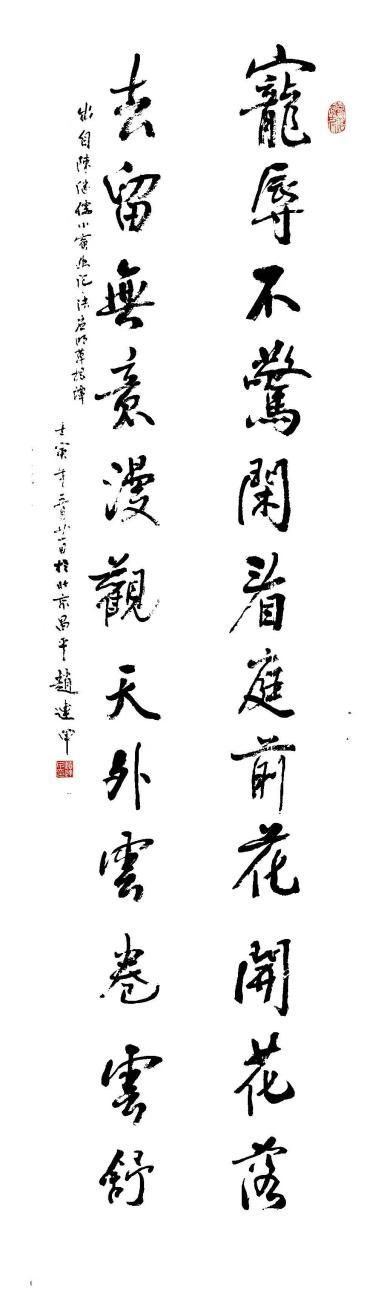 寵辱不驚閑看庭前花開花落
去留無意漫觀天外雲卷雲舒
出自陳繼儒小窗幽記洪應明菜根譚
壬寅年三月廿一日於北京昌平趙建軍